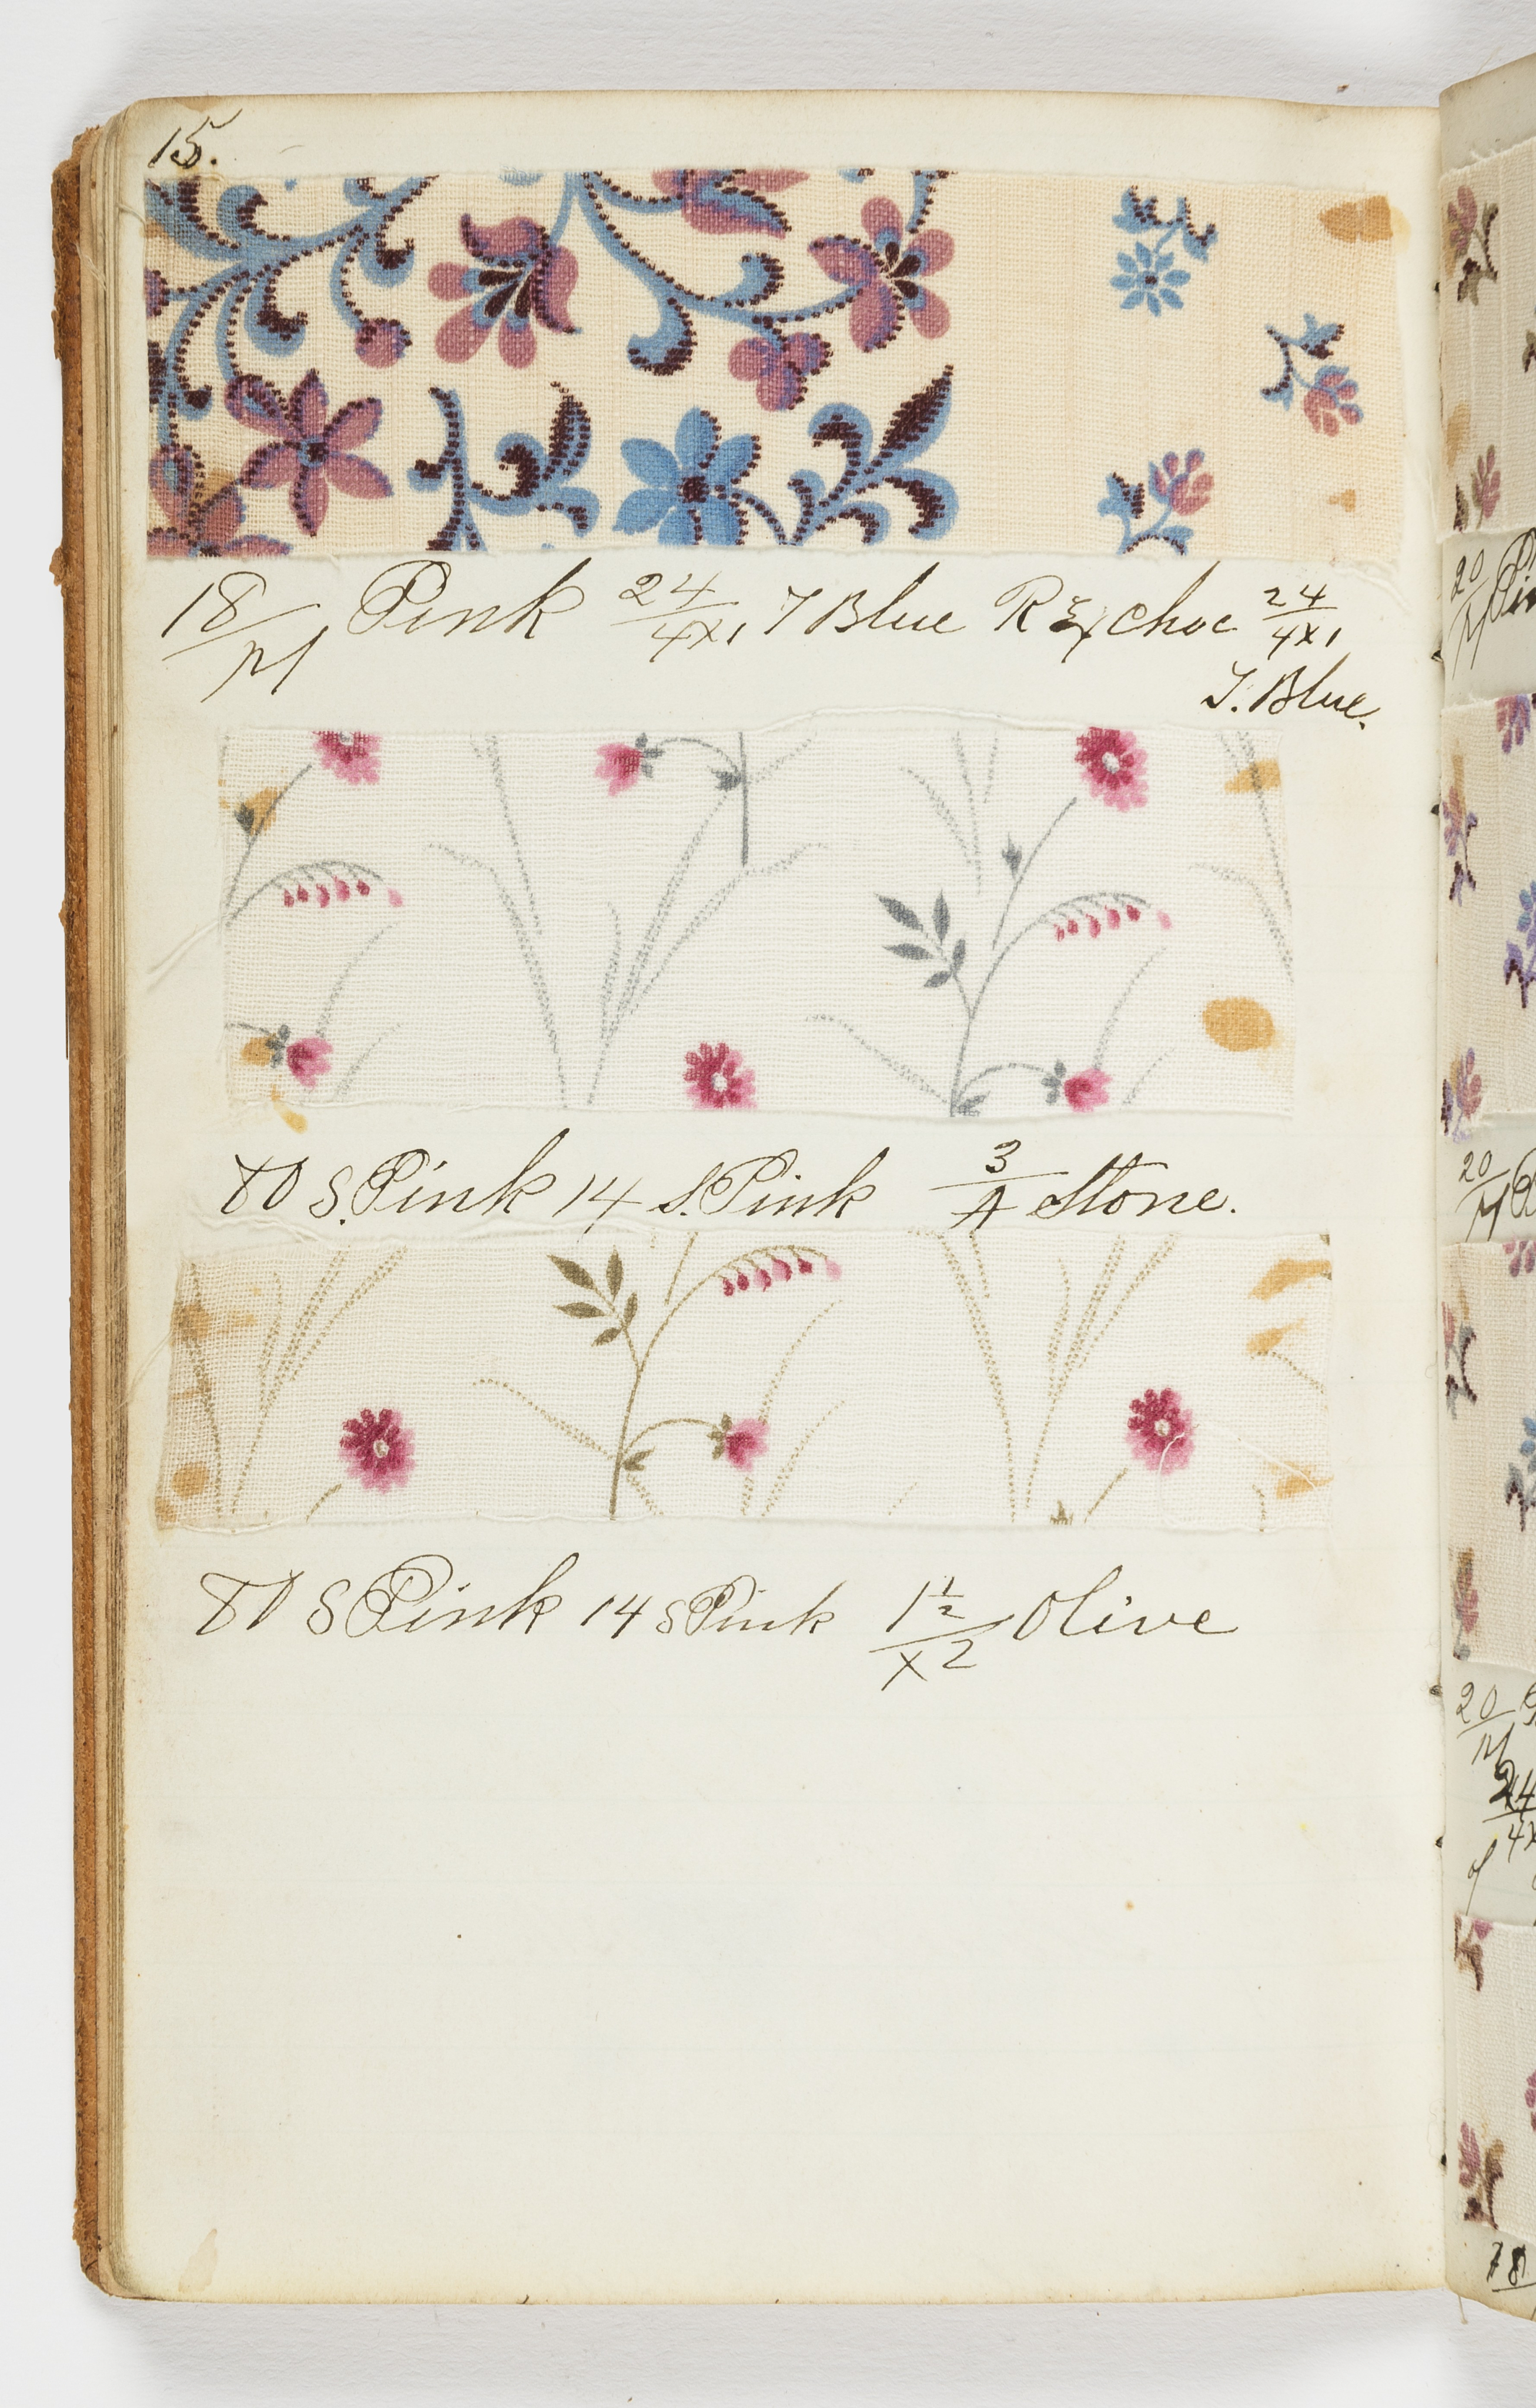 15.
18/M Pink 24/4x1 T Blue R Ex Choc 24/4x1
T. Blue.
80 S. Pink 14 S. Pink 3/A Stone.
80 S Pink 14 S Pink 1 1/2/x2 Olive
20
20
20
24
78